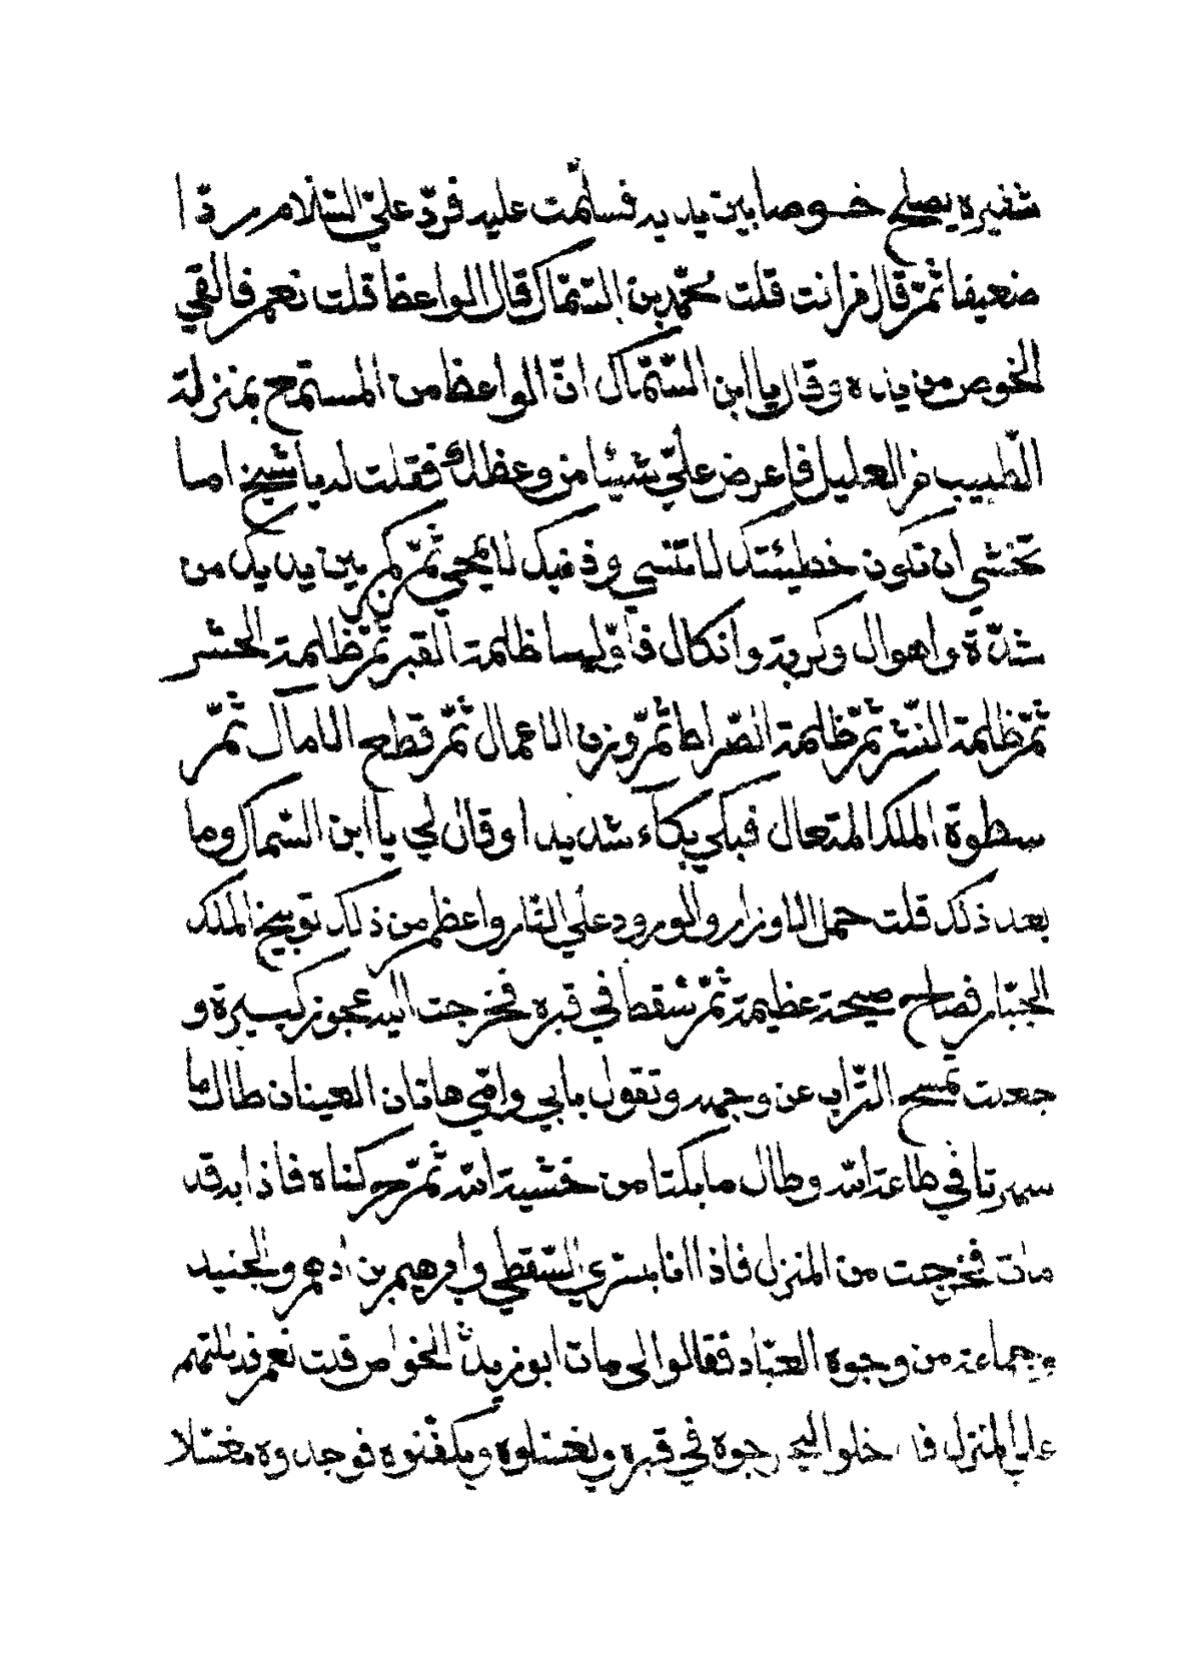 شفيره يصلح خوصا بين يديه فسلّمت عليه فردّ عليّ السّلام ردّا
ضعيفا ثمّ قال من انت قلت محمّد بن السّمّاك قال الواعظ قلت نعم فالقي
الخوص من يده وقال يا ابن السّمّاك انّ الواعظ من المستمح بمنزلة
الطّبيب من العليل فاعرض عليّ شيئا من وعظك فقلت له يا شيخ اما
تخشي ان تكون خطيئتك لا تنسي وذنبك لا يمحي ثمّ كم بين يديك من
شدّة واهوال وكربة وانكال فاوّلها ظلمة القبر ثمّ ظلمة الحشر
ثمّ ظلمة النّشر ثمّ ظلمة الصّراط ثمّ وزن الاعمال ثمّ قطع الامآل ثمّ
سطوة الملك المتعال فبكي بكآء شديدا وقال لي يا ابن السّماك وما
بعد ذلك قلت حمل الاوزار والورود علي النّار واعظم من ذلك توبيخ الملك
الجبّار فصاح صيحة عظيمة ثمّ سقط في قبره فخرجت اليه عجوز كبيرة و
جعلت تمسح التّراب عن وجهه وتقول بابي وامّي هاتان العينان طال ما
سهرتا في طاعة اللّه وطال ما بكتا من خشية اللّه ثمّ حركناه فاذا به قد
مات فخرجت من المنزل فاذا انا بسري السّقطي وابرهيم بن ادهم والجنيد
وجماعة من وجوه العبّاد فقالوا لي مات ابو يزيد الخواص قلت نعم فدللتهم
علي المنزل خلوا في قبره ويغسلوه ويكفّنوه فوجدوه مغسّلا